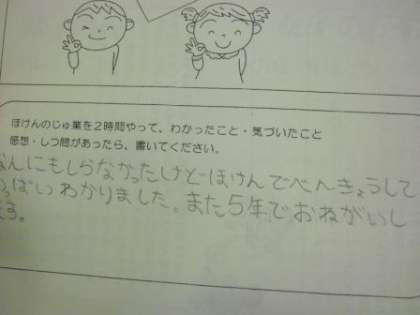 ほけんのじゅ業を2時間やって、わかったこと・気づいたこと
感想・しつ問があったら、書いてください。
なんにもしらなかったけどほけんでべんきょうして
っぱいわかりました。また5年でおねがいし
ます。